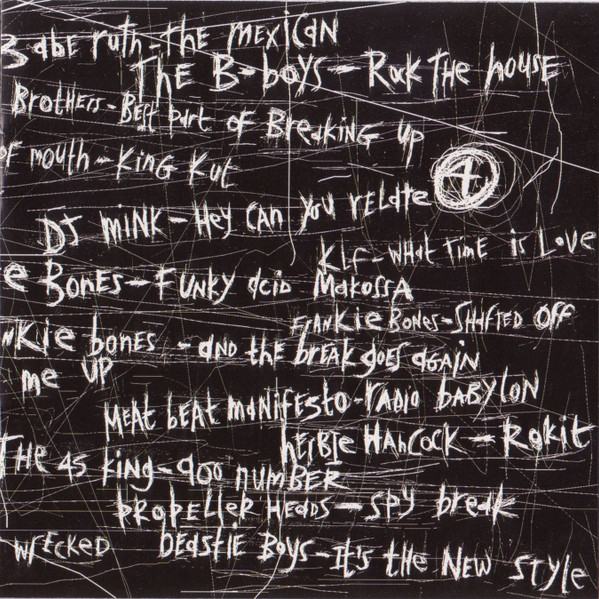 Babe ruth - the mexican
The B-boys - Rock The house
Brothers - Best part of Breaking up
of mouth - King Kut
4
DJ mink - Hey can you relate
KLF - what Time is Love
e Bones - Funky acid Makossa
Frankie Bones - Shafted Off
nkie bones - and the break goes again
me up
Meat beat manifesto - radio babylon
herbie Hancock - Rokit
The 45 king - 900 number
propeller Heads - spy break
wrecked
beastie Boys - It's the New style